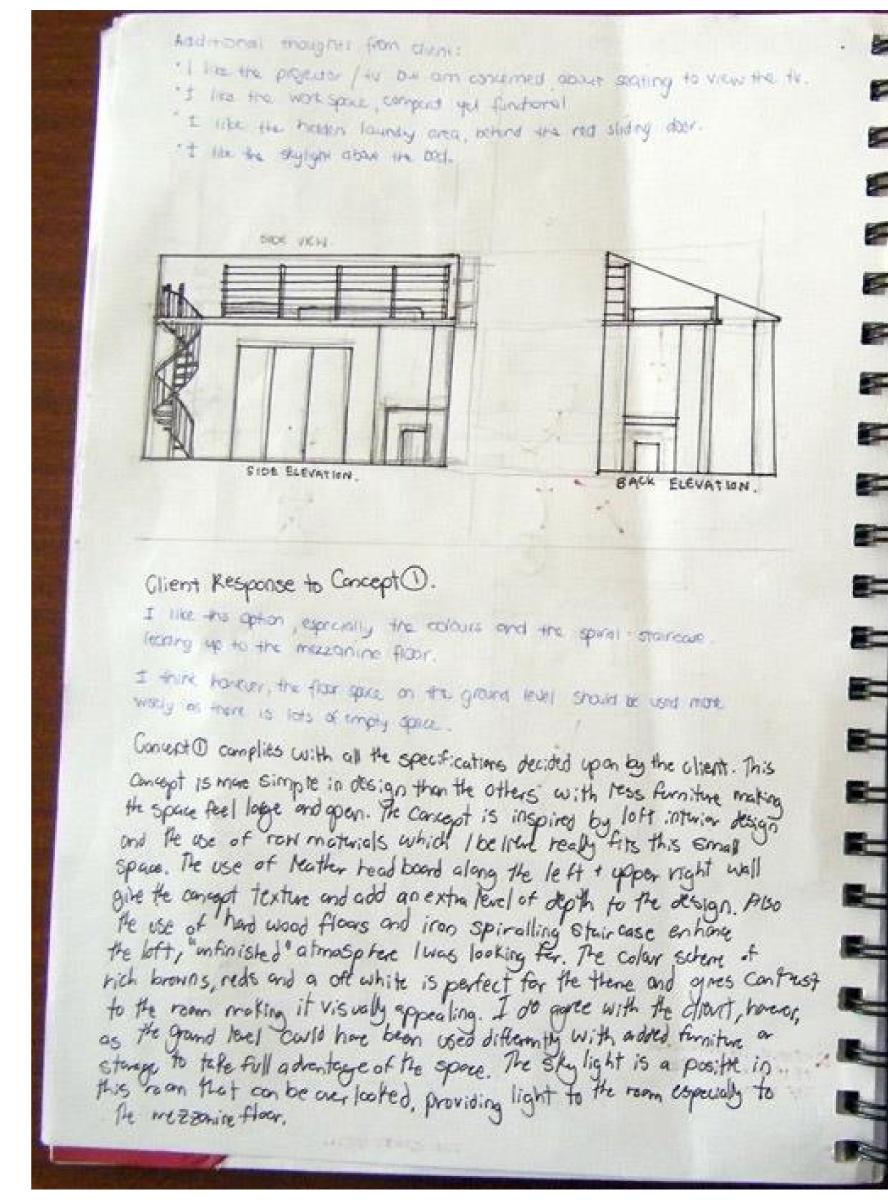 Additional thoughts from client:
• I like the projector / tv but am concerned about seating to view the tv.
• I like the work space, compact yet functional
• I like the hidden laundry area, behind the red sliding door.
• I like the skylight above the bed.
SIDE VIEW.
SIDE ELEVATION.
BACK ELEVATION.
Client Response to Concept ①.
I like this option, especially the colours and the spiral staircase
leading up to the mezzanine floor.
I think however, the floor space on the ground level should be used more
wisely as there is lots of empty space.
Concept ① complies with all the specifications decided upon by the client. This
concept is more simple in design than the others with less furniture making
the space feel large and open. The concept is inspired by loft interior design
and the use of raw materials which I believe really fits this small
space. The use of leather head board along the left + upper right wall
give the concept texture and add an extra level of depth to the design. Also
the use of hard wood floors and iron spiralling staircase enhance
the loft, "unfinished" atmosphere I was looking for. The colour scheme of
rich browns, reds and a off white is perfect for the theme and gives contrast
to the room making it visually appealing. I do agree with the client, however,
as the ground level could have been used differently with added furniture or
storage to take full advantage of the space. The sky light is a positive in
this room that can be over looked, providing light to the room especially to
the mezzanine floor.